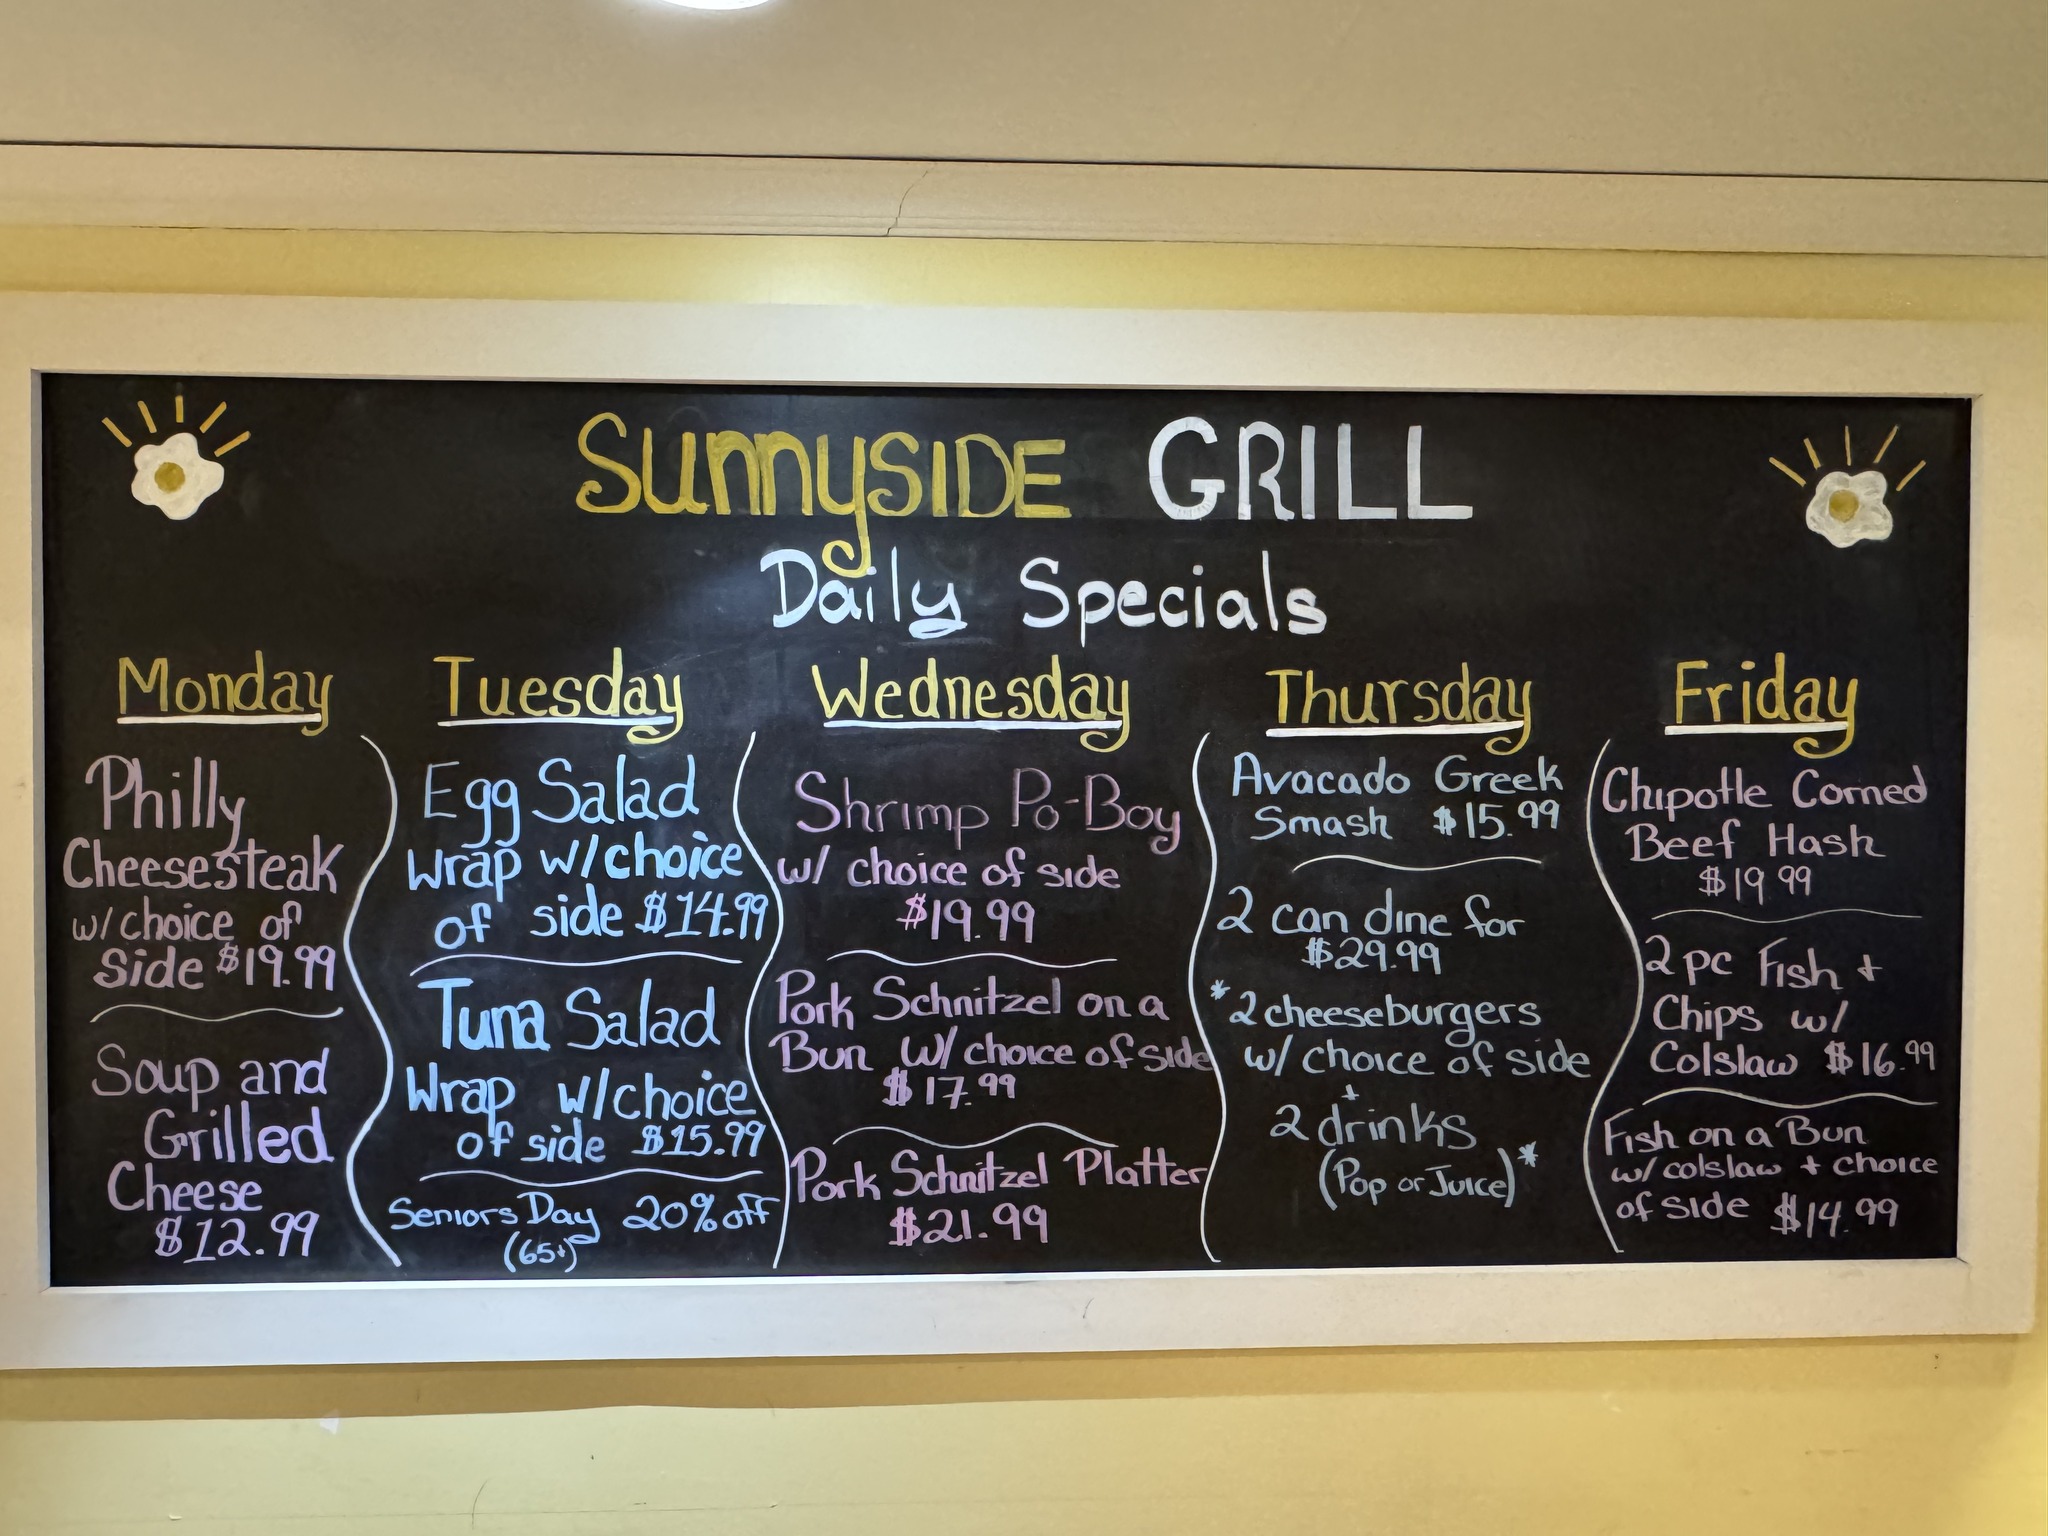 SunnySIDE GRILL
Daily Specials
Monday
Philly
Cheesesteak
w/ choice of
side $19.99
Soup and
Grilled
Cheese
$12.99
Tuesday
Egg Salad
Wrap w/ choice
of side $14.99
Tuna Salad
Wrap w/ choice
of side $15.99
Seniors Day 20% off
(65+)
Wednesday
Shrimp Po-Boy
w/ choice of side
$19.99
Pork Schnitzel on a
Bun w/ choice of side
$17.99
Pork Schnitzel Platter
$21.99
Thursday
Avacado Greek
Smash $15.99
2 can dine for
$29.99
*2 cheeseburgers
w/ choice of side
+
2 drinks
(Pop or Juice)*
Friday
Chipotle Corned
Beef Hash
$19.99
2 pc Fish +
Chips w/
Colslaw $16.99
Fish on a Bun
w/ colslaw + choice
of side $14.99